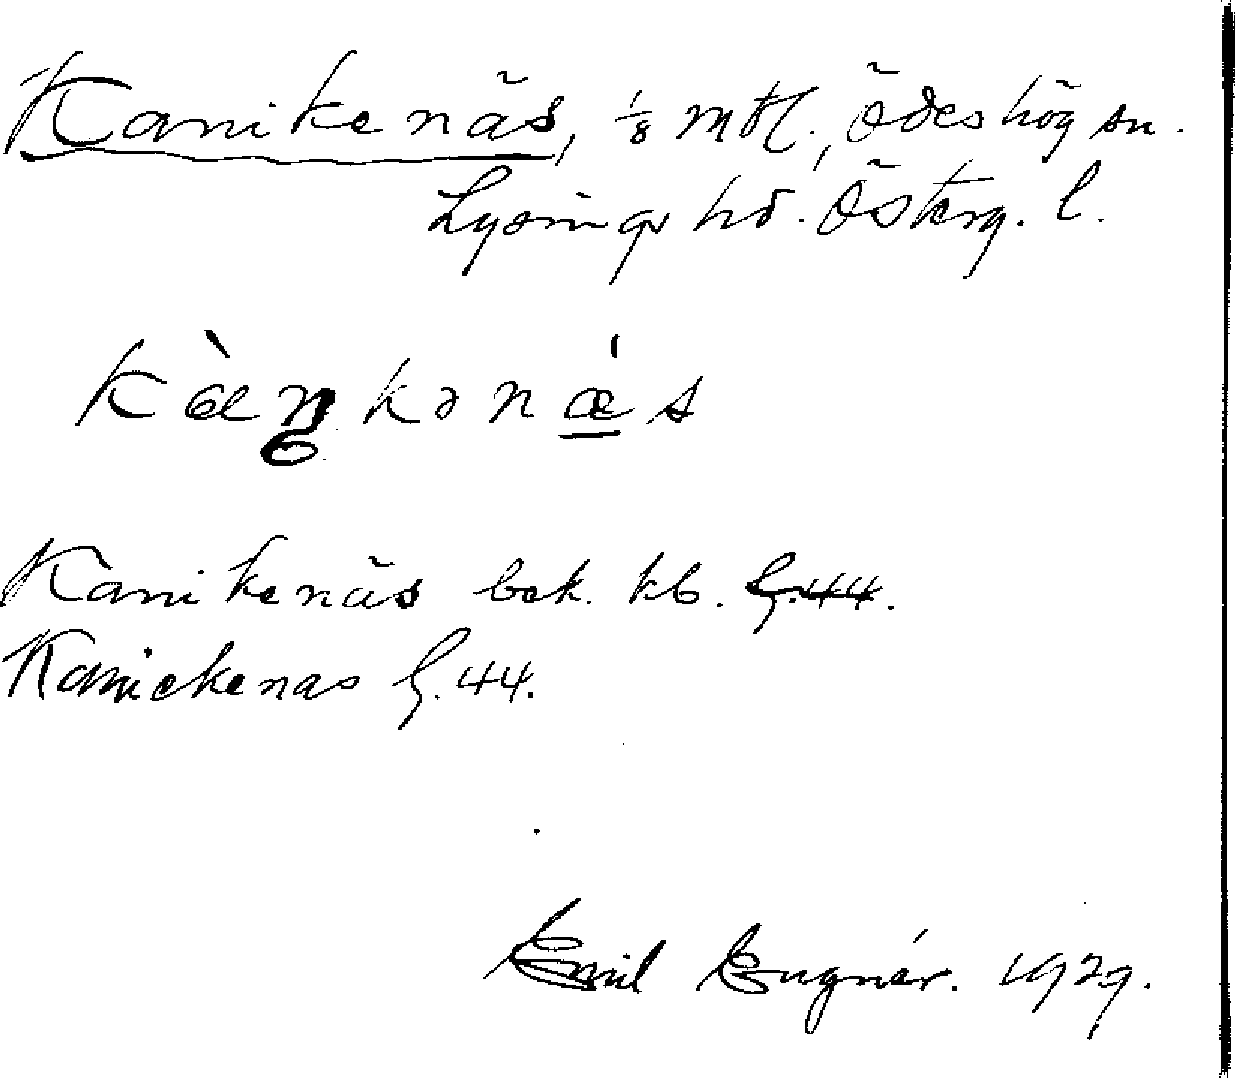 Kanikenäs, 1/8 mtl., Ödeshög sn.
Lysings hd. Österg. l.
kàŋkənǽs
Kanikenäs bek. kb. G. 44.
Kanickenas G. 44.
Emil Engnér. 1929.